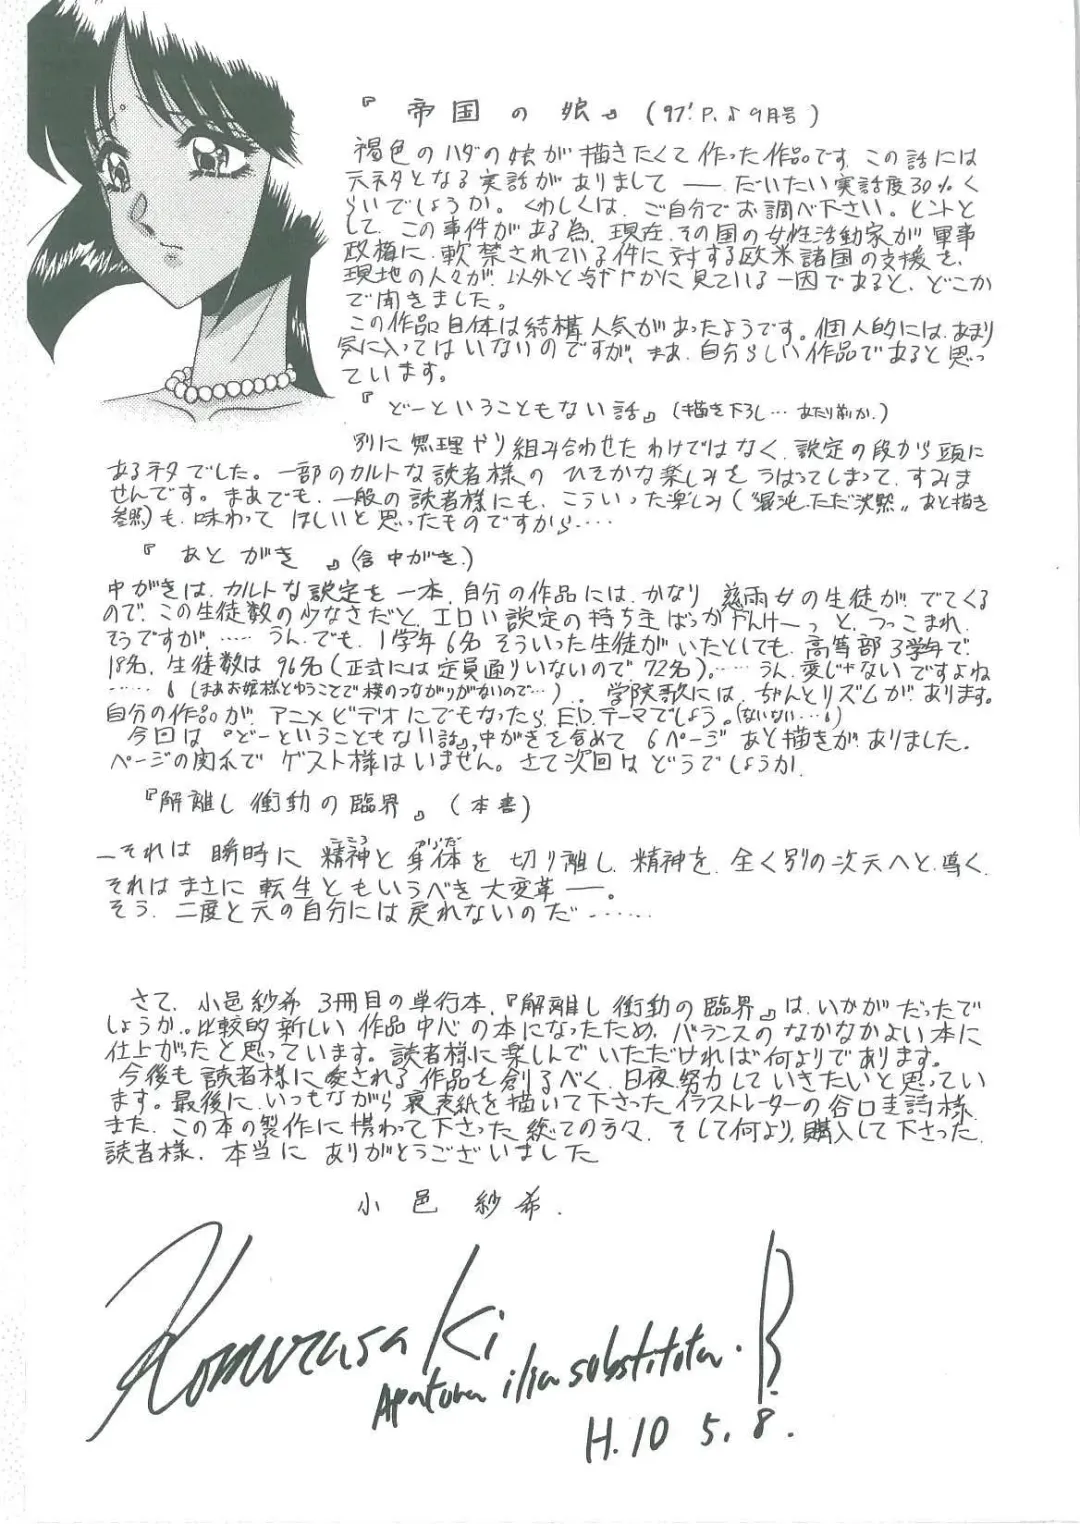 『帝国の娘』(97' P.♪9月号)
褐色のハダの娘が描きたくて作った作品です。この話には
元ネタとなる実話がありまして――だいたい実話度30%く
らいでしょうか。くわしくは、ご自分でお調べ下さい。ヒントと
して、この事件がある為、現在、その国の女性活動家が軍事
政権に軟禁されている件に対する欧米諸国の支援を、
現地の人々が、以外と冷ややかに見ている一因であると、どこか
で聞きました。
この作品自体は結構人気があったようです。個人的には、あまり
気に入ってはいないのですが、まぁ、自分らしい作品であると思っ
ています。
『どーということもない話』(描き下ろし…あたり前か.)
別に無理やり組み合わせたわけではなく、設定の段から頭に
あるネタでした。一部のカルトな読者様のひそかな楽しみをうばってしまって、すみま
せんです。まあでも、一般の読者様にも、こういった楽しみ(〝混沌.ただ沈黙〟あと描き
参照)も、味わってほしいと思ったものですから‥‥
『あとがき』(含中がき.)
中がきは、カルトな設定を一本、自分の作品には、かなり慈雨女の生徒が、でてくる
ので、この生徒数の少なさだと、エロい設定の持ち主ばっかやんけーっと、つっこまれ、
そうですが、‥‥‥うん、でも、1学年6名そういった生徒がいたとしても、高等部3学年で
18名、生徒数は96名(正式には定員通りいないので、72名)。‥‥‥うん、変じゃないですよね
‥‥‥(まぁお嬢様とゆうことで横のつながりがないので…)‥学院歌には、ちゃんとリズムがあります。
自分の作品が、アニメビデオにでもなったら、E.D.テーマでしょう。(ないない…)
今回は『どーということもない話』、中がきを含めて6ページあと描きがありました。
ページの関系でゲスト様はいません。さて次回はどうでしょうか.
『解離し衝動の臨界』(本書)
―それは瞬時に精神と身体を切り離し、精神を、全く別の次元へと、導く、
こころ からだ
それはまさに転生ともいうべき大変革――。
そう、二度と元の自分には戻れないのだ‥‥‥‥
さて、小邑紗希3冊目の単行本、『解離し衝動の臨界』は、いかがだったで
しょうか。比較的新しい作品中心の本になったため、バランスのなかなかよい本に
仕上がったと思っています。読者様に楽しんでいただければ何よりであります。
今後も読者様に愛される作品を創るべく、日夜努力していきたいと思ってい
ます。最後に、いつもながら裏表紙を描いて下さったイラストレーターの谷口圭詩様、
また、この本の製作に携わって下さった総ての方々、そして何より、購入して下さった、
読者様、本当にありがとうございました
小邑 紗希.
KomurasaKi
Apatura ilia substituta. B.
H.10 5.8.